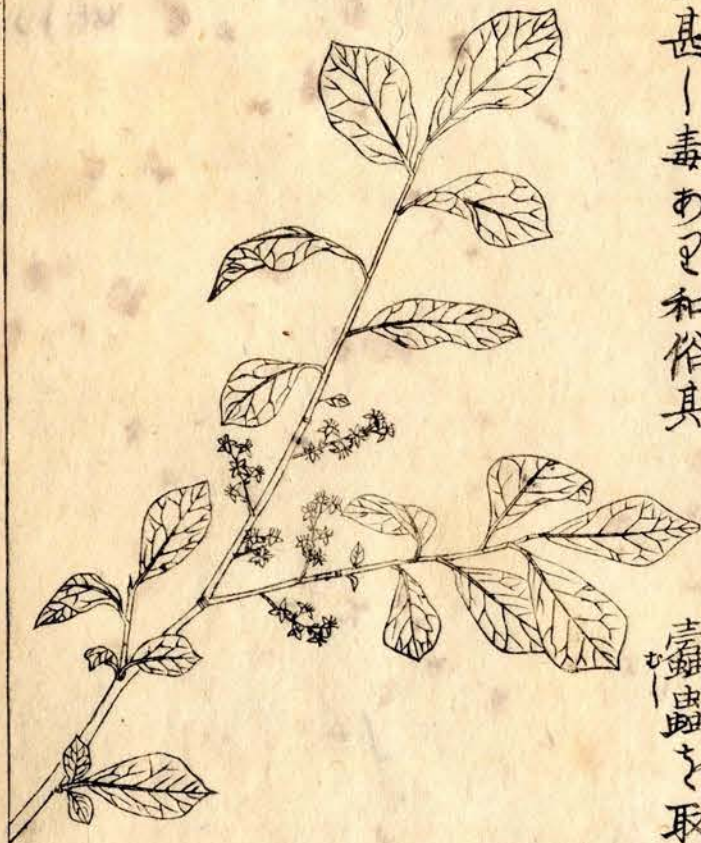 甚し毒あり和俗其
蠹蟲を取
むし